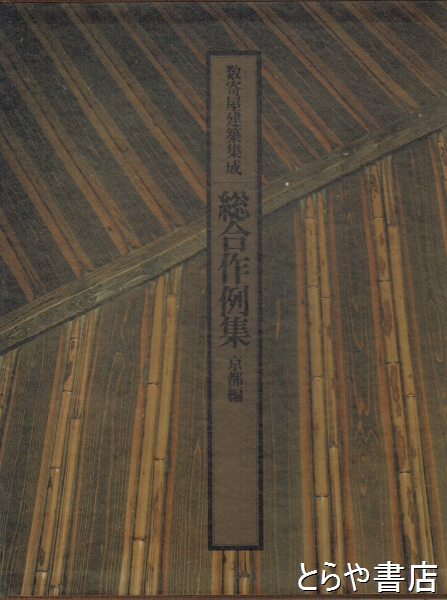 数寄屋建築集成
総合作例集 京都編
とらや書店